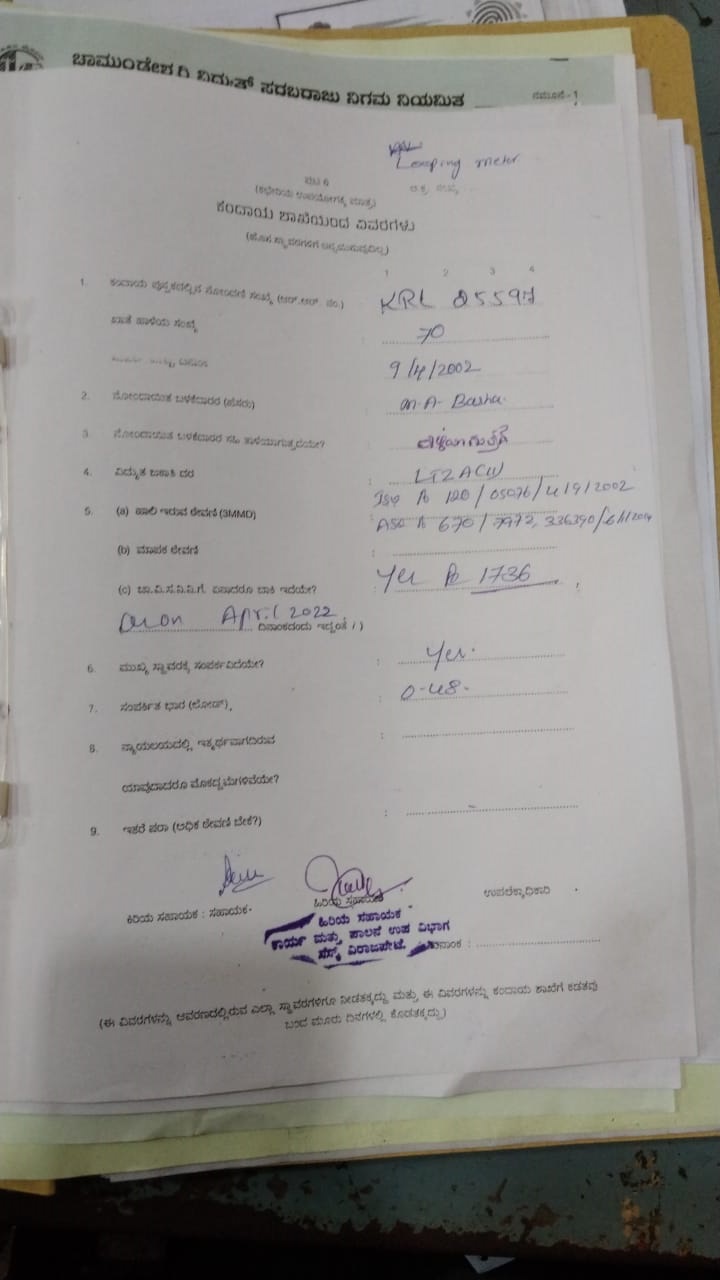 ಚಾಮುಂಡೇಶ್ವರಿ ವಿದ್ಯುತ್ ಸರಬರಾಜು ನಿಗಮ ನಿಯಮಿತ
ನಮೂನೆ-1
Looping meter
ಪುಟ 6
(ಕಛೇರಿಯ ಉಪಯೋಗಕ್ಕೆ ಮಾತ್ರ)
ಕಂದಾಯ ಶಾಖೆಯಿಂದ ವಿವರಗಳು
1 2 3 4
1. ಕಂದಾಯ ಪುಸ್ತಕದಲ್ಲಿನ ನೋಂದಣಿ ಸಂಖ್ಯೆ (ಆರ್.ಆರ್. ನಂ.) KRL 05597
ಖಾತೆ ಹಾಳೆಯ ಸಂಖ್ಯೆ : 70
9/4/2002
2. ನೋಂದಾಯಿತ ಬಳಕೆದಾರರ (ಹೆಸರು) : M.A. Basha.
3. ನೋಂದಾಯಿತ ಬಳಕೆದಾರರ ಸಹಿ ತಾಳೆಯಾಗುತ್ತದೆಯೇ? :
4. ವಿದ್ಯುತ್ ಜಕಾತಿ ದರ : LT2A(C)
5. (a) ಹಾಲಿ ಇರುವ ಠೇವಣಿ (3MMD) : 120/05076/4/9/2002
670/7972, 336390/
(b) ಮಾಪಕ ಠೇವಣಿ :
(c) ಚಾ.ವಿ.ಸ.ನಿ.ನಿ.ಗೆ. ಏನಾದರೂ ಬಾಕಿ ಇದೆಯೇ? : Yes 1736
on April 2022 ದಿನಾಂಕದಂದು ಇದ್ದಂತೆ / )
6. ಮುಖ್ಯ ಸ್ಥಾವರಕ್ಕೆ ಸಂಪರ್ಕವಿದೆಯೇ? : Yes.
7. ಸಂಪರ್ಕಿತ ಭಾರ (ಲೋಡ್), : 0-48.
8. ನ್ಯಾಯಾಲಯದಲ್ಲಿ ಇತ್ಯರ್ಥವಾಗದಿರುವ :
ಯಾವುದಾದರೂ ಮೊಕದ್ದಮೆಗಳಿವೆಯೇ?
9. ಇತರೆ ಷರಾ (ಅಧಿಕ ಠೇವಣಿ ಬೇಕೆ?) : -
ಕಿರಿಯ ಸಹಾಯಕ : ಸಹಾಯಕ ಹಿರಿಯ ಸಹಾಯಕ ಉಪಲೆಕ್ಕಾಧಿಕಾರಿ
ಹಿರಿಯ ಸಹಾಯಕ
ಕಾರ್ಯ ಮತ್ತು ಪಾಲನೆ ಉಪ ವಿಭಾಗ
ಸೆಸ್ಕ್ ವಿರಾಜಪೇಟೆ.
ದಿನಾಂಕ :
(ಈ ವಿವರಗಳನ್ನು ಆವರಣದಲ್ಲಿರುವ ಎಲ್ಲಾ ಸ್ಥಾವರಗಳಿಗೂ ನೀಡತಕ್ಕದ್ದು ಮತ್ತು ಈ ವಿವರಗಳನ್ನು ಕಂದಾಯ ಶಾಖೆಗೆ ಕಡತವು
ಬಂದ ಮೂರು ದಿನಗಳಲ್ಲಿ ಕೊಡತಕ್ಕದ್ದು)